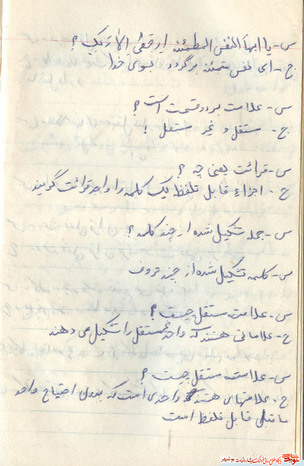 س - یا ایها النفس المطمئنه ارجعی الا ربک؟
ج - ای نفس مطمئنه برگرد بسوی خدا
س - علامت بر دو قسمت است؟
ج - مستقل و غیر مستقل
س - قرائت یعنی چه؟
ج - اجزاء قابل تلفظ یک کلمه را واحد قرائت گویند
س - جمله تشکیل شده از چند کلمه؟
س - کلمه تشکیل شده از چند حروف
س - علامت مستقل چیست؟
ج - علاماتی هستند که واحد مستقل را تشکیل می دهند
س - علامت مستقل چیست؟
ج - علامتهای هستند واحدی است که بدون احتیاج واحد
ما قبلی قابل تلفظ است